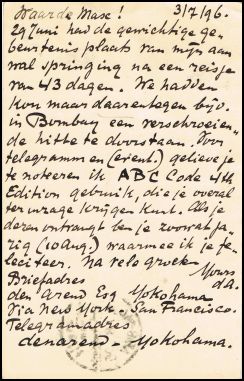 Waarde Max! 3/7/96.
29 Juni had de gewichtige ge-
beurtenis plaats van mijn aan
wal springing na een reisje
van 43 dagen. We hadden
kou maar daarentegen bijv.
in Bombay een verschroeien-
de hitte te doorstaan. Voor
telegrammen (event.) gelieve je
te noteeren ik ABC Code 4th
Edition gebruik, die je overal
ter vrage krijgen kunt. Als je
deren ontvangt ben je
rig (10 Aug.) waarmee ik je fe-
liciteer. Na vele groeten
Yours
d.A.
Briefadres
den Arend Esq Yokohama
Via New York - San Francisco.
Telegramadres
denarend - Yokohama.